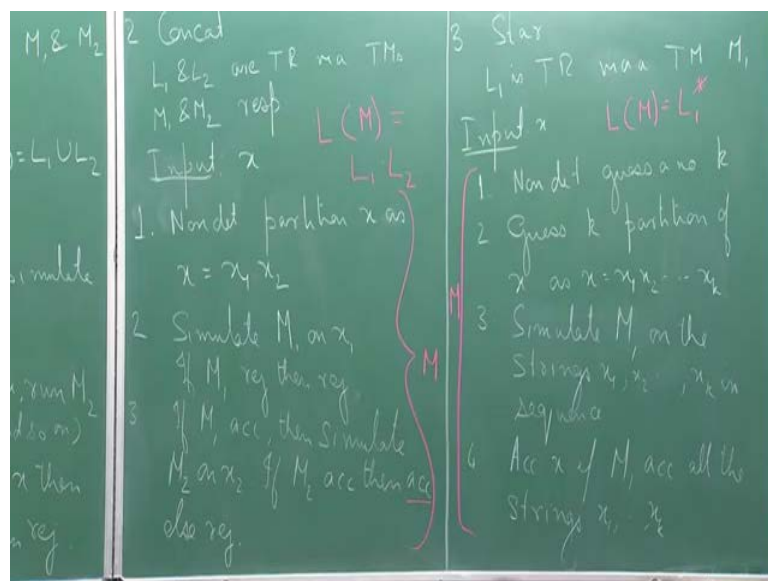 M₁ & M₂
) = L₁ ∪ L₂
simulate
, run M₂
d so on)
x then
rej.
2 Concat
L₁ & L₂ are TR via TMs
M₁ & M₂ resp
L(M) =
L₁ L₂
Input: x
1. Non det partition x as
x = x₁ x₂
2 Simulate M₁ on x₁
If M₁ rej then rej
3 If M₁ acc, then simulate
M₂ on x₂ If M₂ acc then acc
else rej.
M
3 Star
L₁ is TR via a TM M₁
L(M) = L₁*
Input x
1. Non det guess a no k
2 Guess k partition of
x as x = x₁ x₂ ... x_k
3 Simulate M₁ on the
strings x₁, x₂ ..., x_k in
sequence
4 Acc x if M₁ acc all the
strings x₁, .. x_k
M